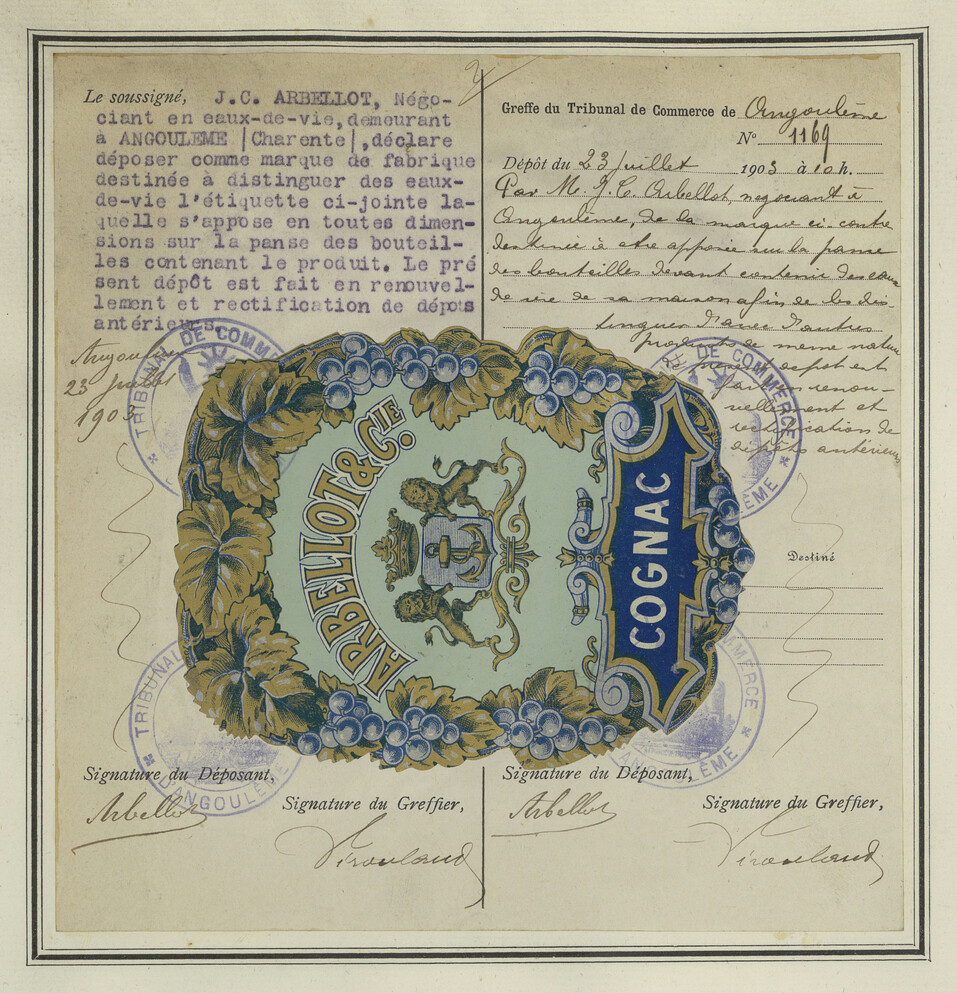 2
Le soussigné, J.C. ARBELLOT, Négo-
ciant en eaux-de-vie, demeurant
à ANGOULEME |Charente|, déclare
déposer comme marque de fabrique
destinée à distinguer des eaux-
de-vie l'étiquette ci-jointe la-
quelle s'appose en toutes dimen-
sions sur la panse des bouteil-
les contenant le produit. Le pré
sent dépôt est fait en renouvel-
lement et rectification de dépots
antérieurs.
Angoulême
23 Juillet
1903
Greffe du Tribunal de Commerce de Angoulême
N° 1169
Dépôt du 23 Juillet 1903 à 10 h.
Par M. J. C. Arbellot, negociant à
Angoulême, de la marque ci-contre
destinée à etre apposée sur la panse
des bouteilles devant contenir des eaux
de vie de sa maison afin de les dis-
tinguer d'avec d'autres
produits de meme nature
Le présent dépot est
fait en renou-
vellement et
rectification de
dépôts antérieurs
TRIBUNAL DE COMMERCE
TRIBUNAL DE COMMERCE D'ANGOULÊME
ARBELLOT & C.IE
COGNAC
Destiné
TRIBUNAL D'ANGOULÊME
COMMERCE D'ANGOULÊME
Signature du Déposant,
Arbellot
Signature du Greffier,
Signature du Déposant,
Arbellot
Signature du Greffier,